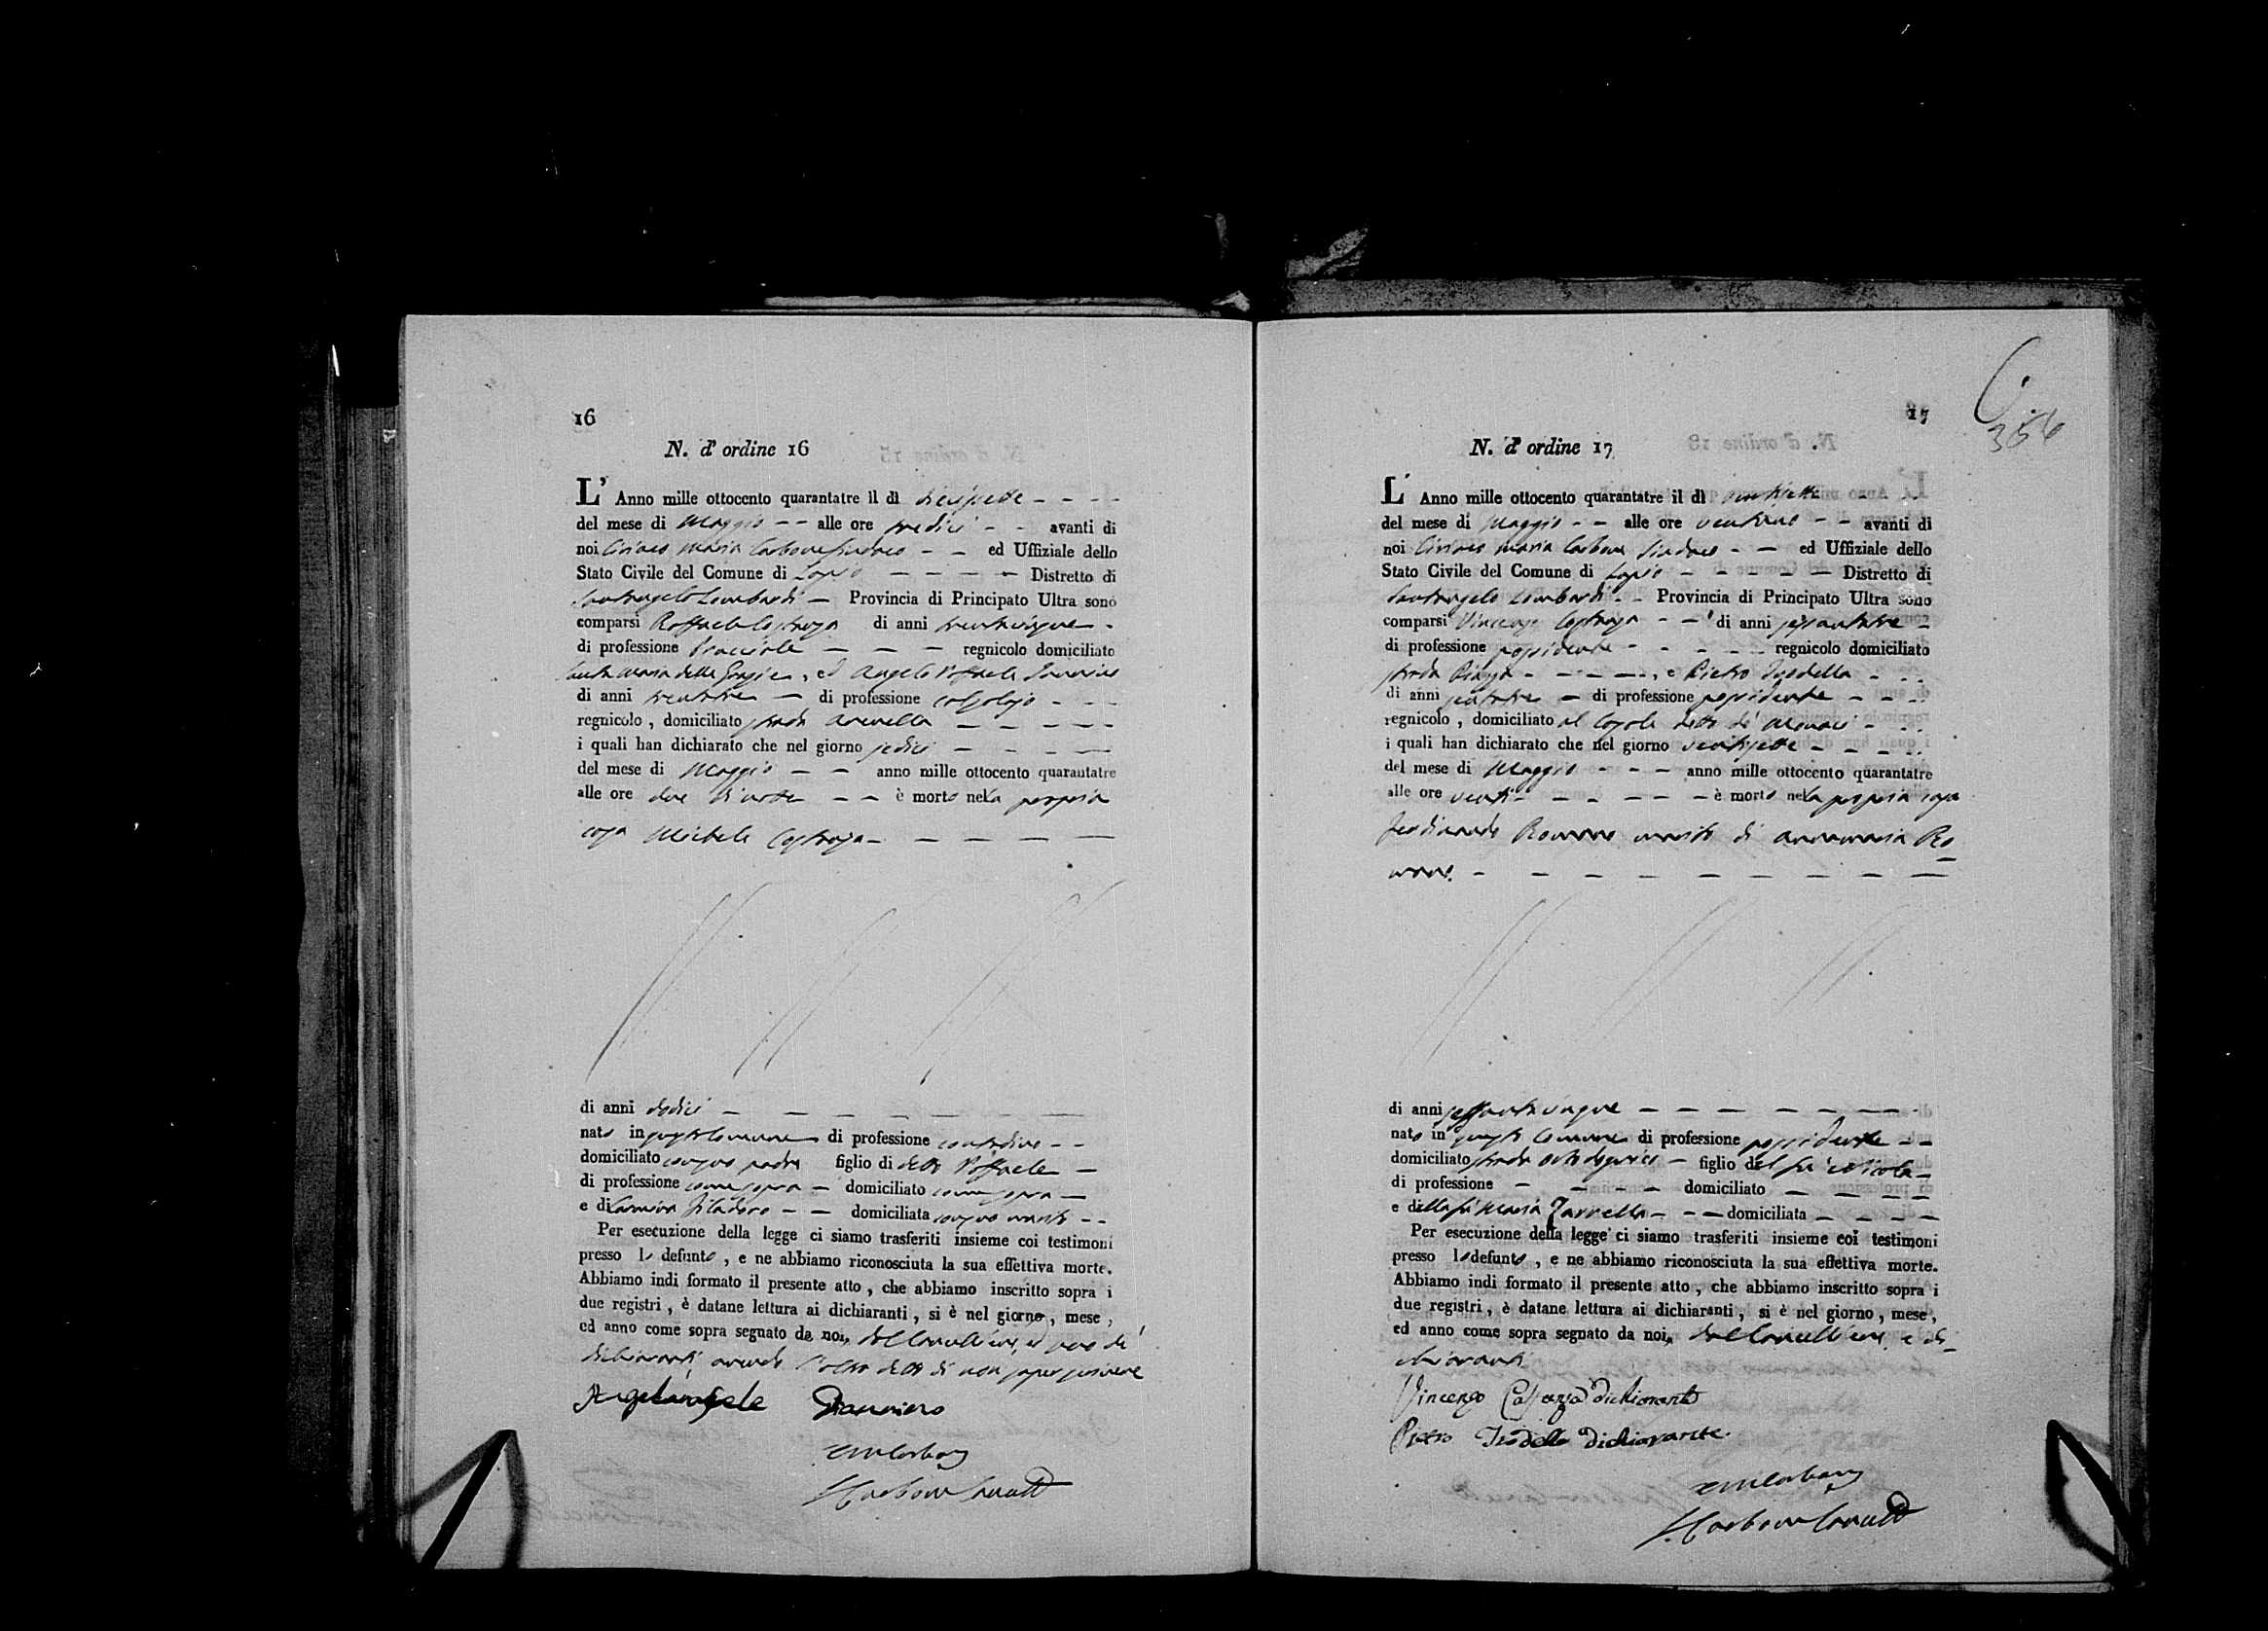 16
N. d' ordine 16
L' Anno mille ottocento quarantatre il dì diecisette
del mese di Maggio alle ore tredici avanti di
noi Ciriaco Maria Carbone Sindaco ed Uffiziale dello
Stato Civile del Comune di Lapio Distretto di
Santangelo Lombardi Provincia di Principato Ultra sono
comparsi Raffaele di anni trentacinque
di professione bracciale regnicolo domiciliato
Santa Maria delle Grazie, ed Angelo Raffaele
di anni di professione calzolajo
regnicolo, domiciliato strada
i quali han dichiarato che nel giorno sedici
del mese di Maggio anno mille ottocento quarantatre
alle ore due di notte è morto nella propria
casa Michele
di anni dodici
nato in questo Comune di professione contadino
domiciliato con suo padre figlio di detto Raffaele
di professione come sopra domiciliato come sopra
e di domiciliata con suo marito
Per esecuzione della legge ci siamo trasferiti insieme coi testimoni
presso lo defunto, e ne abbiamo riconosciuta la sua effettiva morte.
Abbiamo indi formato il presente atto, che abbiamo inscritto sopra i
due registri, è datane lettura ai dichiaranti, si è nel giorno, mese,
ed anno come sopra segnato da noi, dal Cancelliere, ed uno de'
dichiaranti, avendo l'altro detto di non saper scrivere
17
356
N. d' ordine 17
L' Anno mille ottocento quarantatre il dì ventisette
del mese di Maggio alle ore ventuno avanti di
noi Ciriaco Maria Carbone Sindaco ed Uffiziale dello
Stato Civile del Comune di Lapio Distretto di
Santangelo Lombardi Provincia di Principato Ultra sono
comparsi Vincenzo di anni sessantatre
di professione possidente regnicolo domiciliato
strada Piazza, e Pietro Isodella
di anni di professione possidente
regnicolo, domiciliato al
i quali han dichiarato che nel giorno ventisette
del mese di Maggio anno mille ottocento quarantatre
alle ore venti è morto nella propria casa
Ferdinando Romano marito di Annamaria Ro-
mano.
di anni sessantacinque
nato in questo Comune di professione possidente
domiciliato strada figlio del fu Nicola
di professione domiciliato
e della fu Maria Zarrella domiciliata
Per esecuzione della legge ci siamo trasferiti insieme coi testimoni
presso lo defunto, e ne abbiamo riconosciuta la sua effettiva morte.
Abbiamo indi formato il presente atto, che abbiamo inscritto sopra i
due registri, è datane lettura ai dichiaranti, si è nel giorno, mese,
ed anno come sopra segnato da noi, dal Cancelliere, e di-
chiaranti
Vincenzo dichiarante
Pietro Isodella dichiarante.